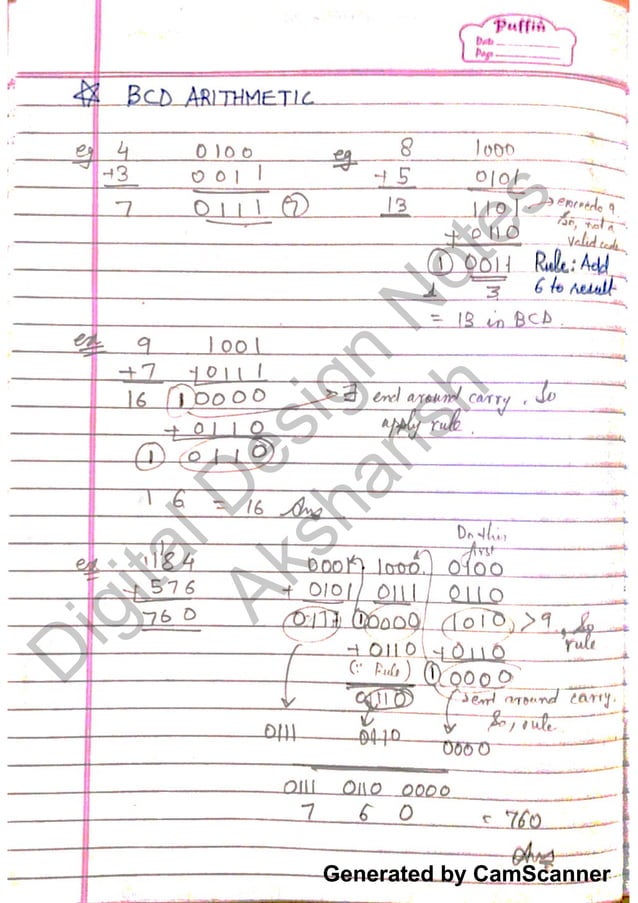 Puffin
Date
Page
☆ BCD ARITHMETIC
eg 4 0100
+3 0011
7 0111 (7)
eg 8 1000
+ 5 0101
13 1101 → exceeds 9.
So, not a
valid code
+ 0110
① 0011 Rule: Add
1 3 6 to result
= 13 in BCD.
ex 9 1001
+7 +0111
16 10000 → ∃ end around carry. So
apply rule.
+0110
① 0110
1 6 = 16 Ans
ex 184
+ 576
760
Do this
first
0001 1000 0100
+ 0101 0111 0110
0111 ①0000 1010 > 9, So
rule
+0110 +0110
(∵ Rule) ① 0000
0110 ∃ end around carry.
So, rule.
0111 0110 0000
0111 0110 0000
7 6 0 = 760
Ans
Digital Design Notes
Aksharish
Generated by CamScanner